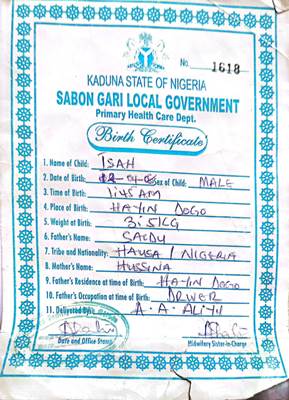 No. 1618
KADUNA STATE OF NIGERIA
SABON GARI LOCAL GOVERNMENT
Primary Health Care Dept.
Birth Certificate
1. Name of Child: ISAH
2. Date of Birth: Sex of Child: MALE
3. Time of Birth: 1:45 AM
4. Place of Birth: HAYIN DOGO
5. Weight at Birth: 3.5KG
6. Father's Name: SAIDU
7. Tribe and Nationality: HAUSA / NIGERIA
8. Mother's Name: HUSSINA
9. Father's Residence at time of Birth: HAYIN DOGO
10. Father's Occupation at time of Birth: DRIVER
11. Delivered By: A. A. ALIYU
Date and Office Stamp
Midwifery Sister-in-Charge